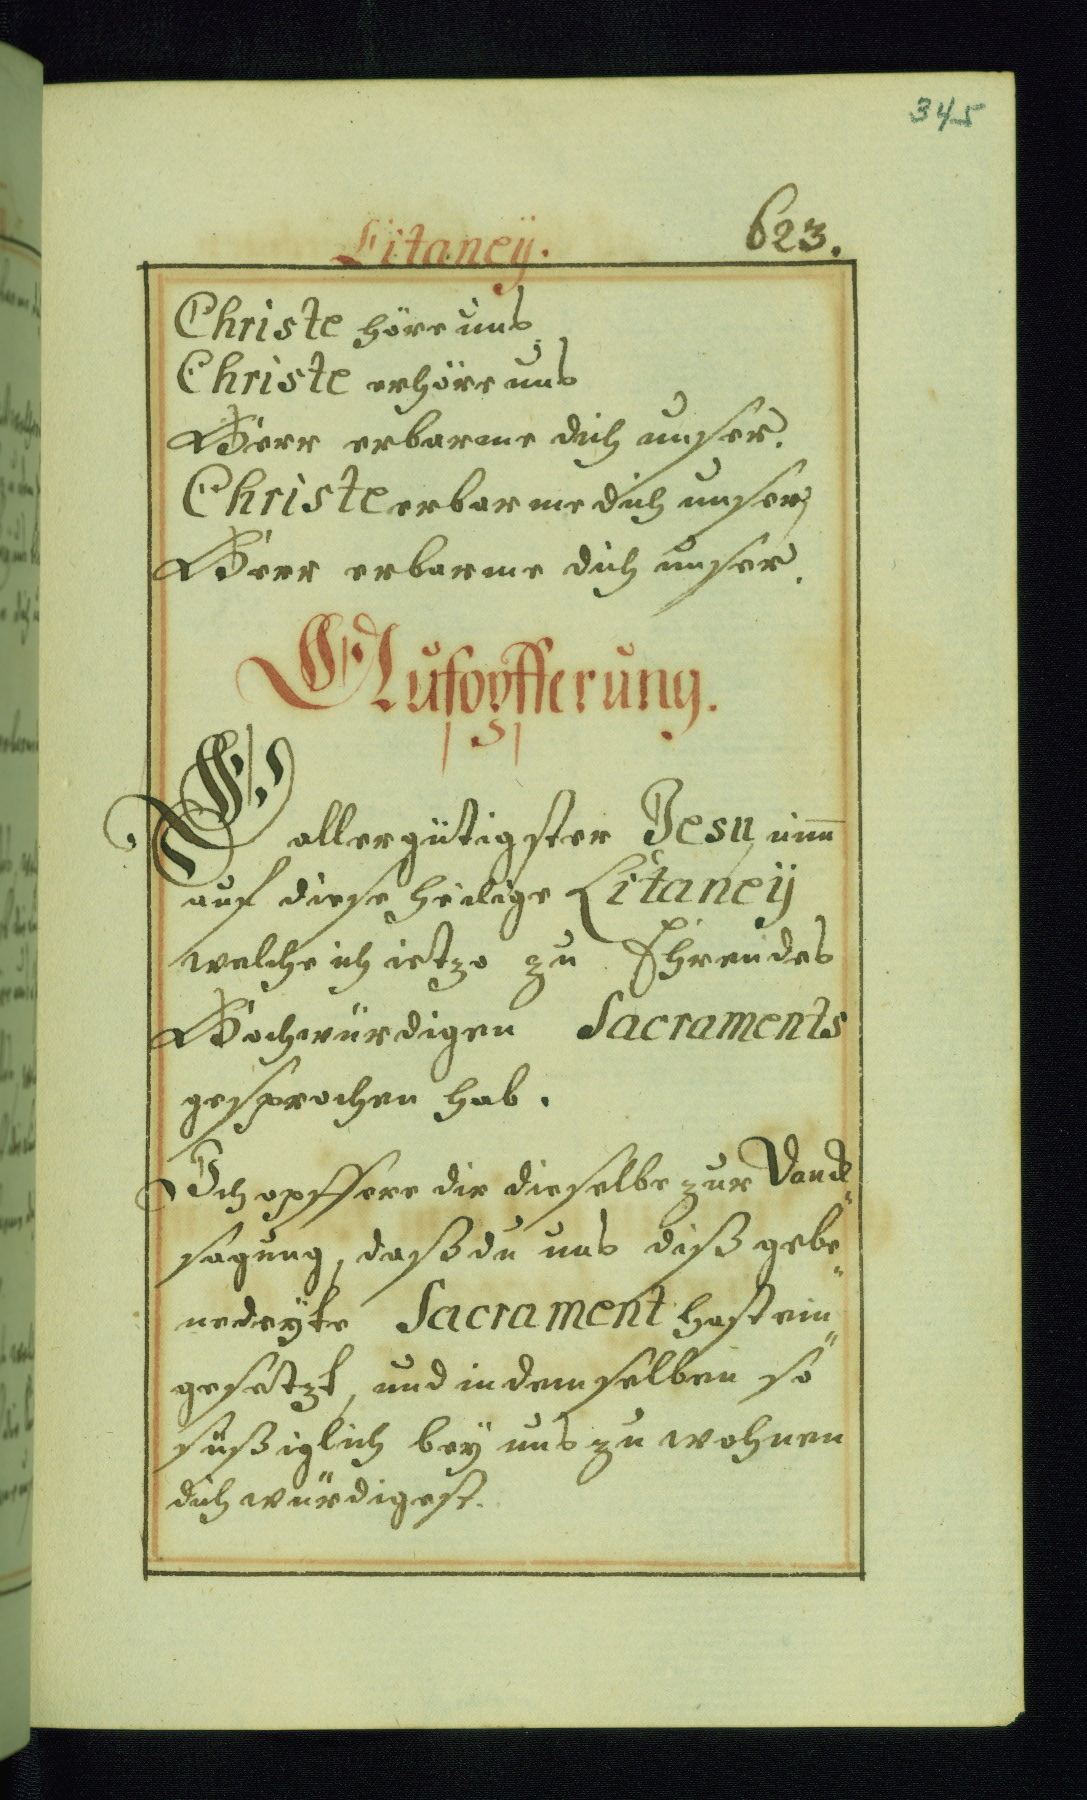 345
Litaneÿ. 623.
Christe höre uns
Christe erhöre uns
Herr erbarme dich unser.
Christe erbarme dich unser,
Herr erbarme dich unser.
Aufopfferung.
O allergütigster Jesu nim̅
auf diese heilige Litaneÿ
welche ich ietzo zu Ehren des
Hochwürdigen Sacraments
gesprochen hab.
Ich opffere dir dieselbe zur Danck„
sagung, daß du uns diß gebe„
nedeyte Sacrament hast ein„
gesetzt, und in demselben so
süßiglich beÿ uns zu wohnen
dich würdigest.